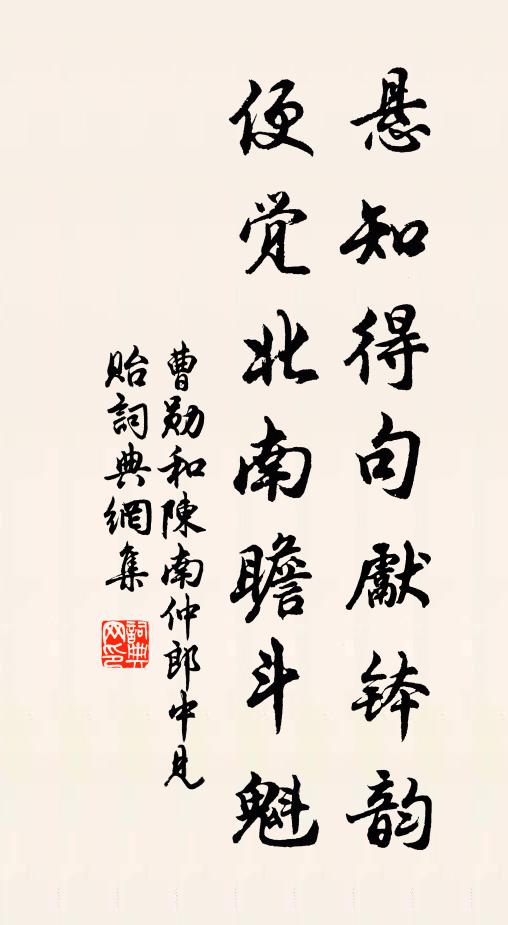 悬知得句獻钵韵
便觉北南瞻斗魁
曹勋和陳南仲郎中見
貽詞典網集
詞典
网印